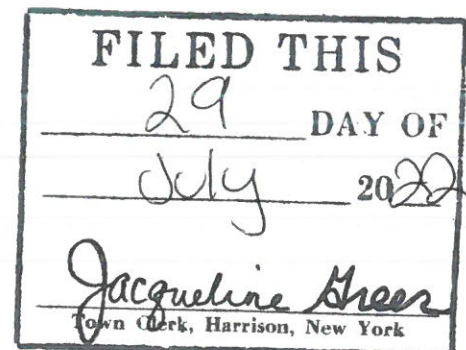 FILED THIS
29 DAY OF
July 2022
Jacqueline Greer
Town Clerk, Harrison, New York